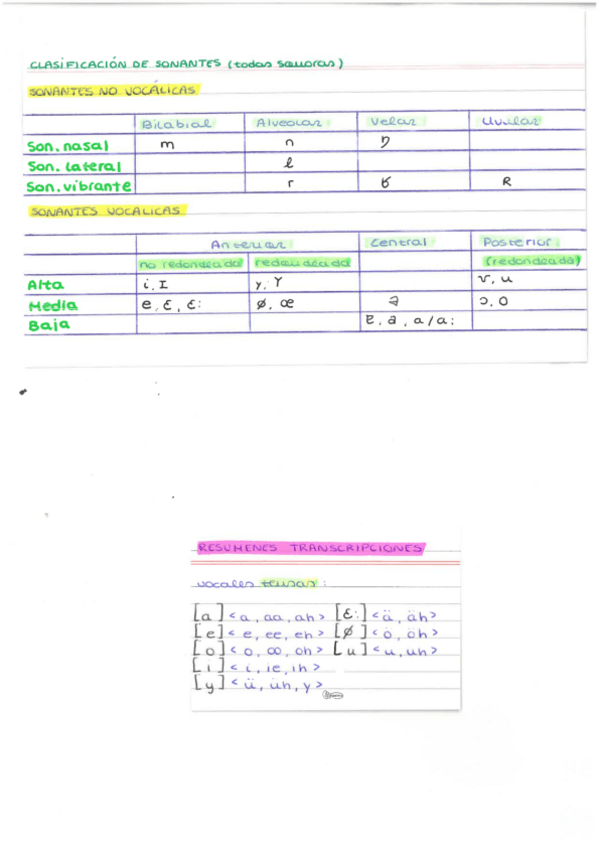 CLASIFICACIÓN DE SONANTES (todas sonoras)
SONANTES NO VOCÁLICAS
Bilabial Alveolar Velar Uvular
Son. nasal m n ŋ
Son. lateral l
Son. vibrante r ʁ R
SONANTES VOCALICAS
Anterior Central Posterior
no redondeada redondeada (redondeada)
Alta i, I y, Y ʊ, u
Media e, ɛ, ɛ: ø, œ ə ɔ, o
Baja ɐ, a, a/a:
RESUMENES TRANSCRIPCIONES
vocales tensas:
[a] <a, aa, ah> [ɛ:] <ä, äh>
[e] <e, ee, eh> [ø] <ö, öh>
[o] <o, oo, oh> [u] <u, uh>
[i] <i, ie, ih>
[y] <ü, üh, y>